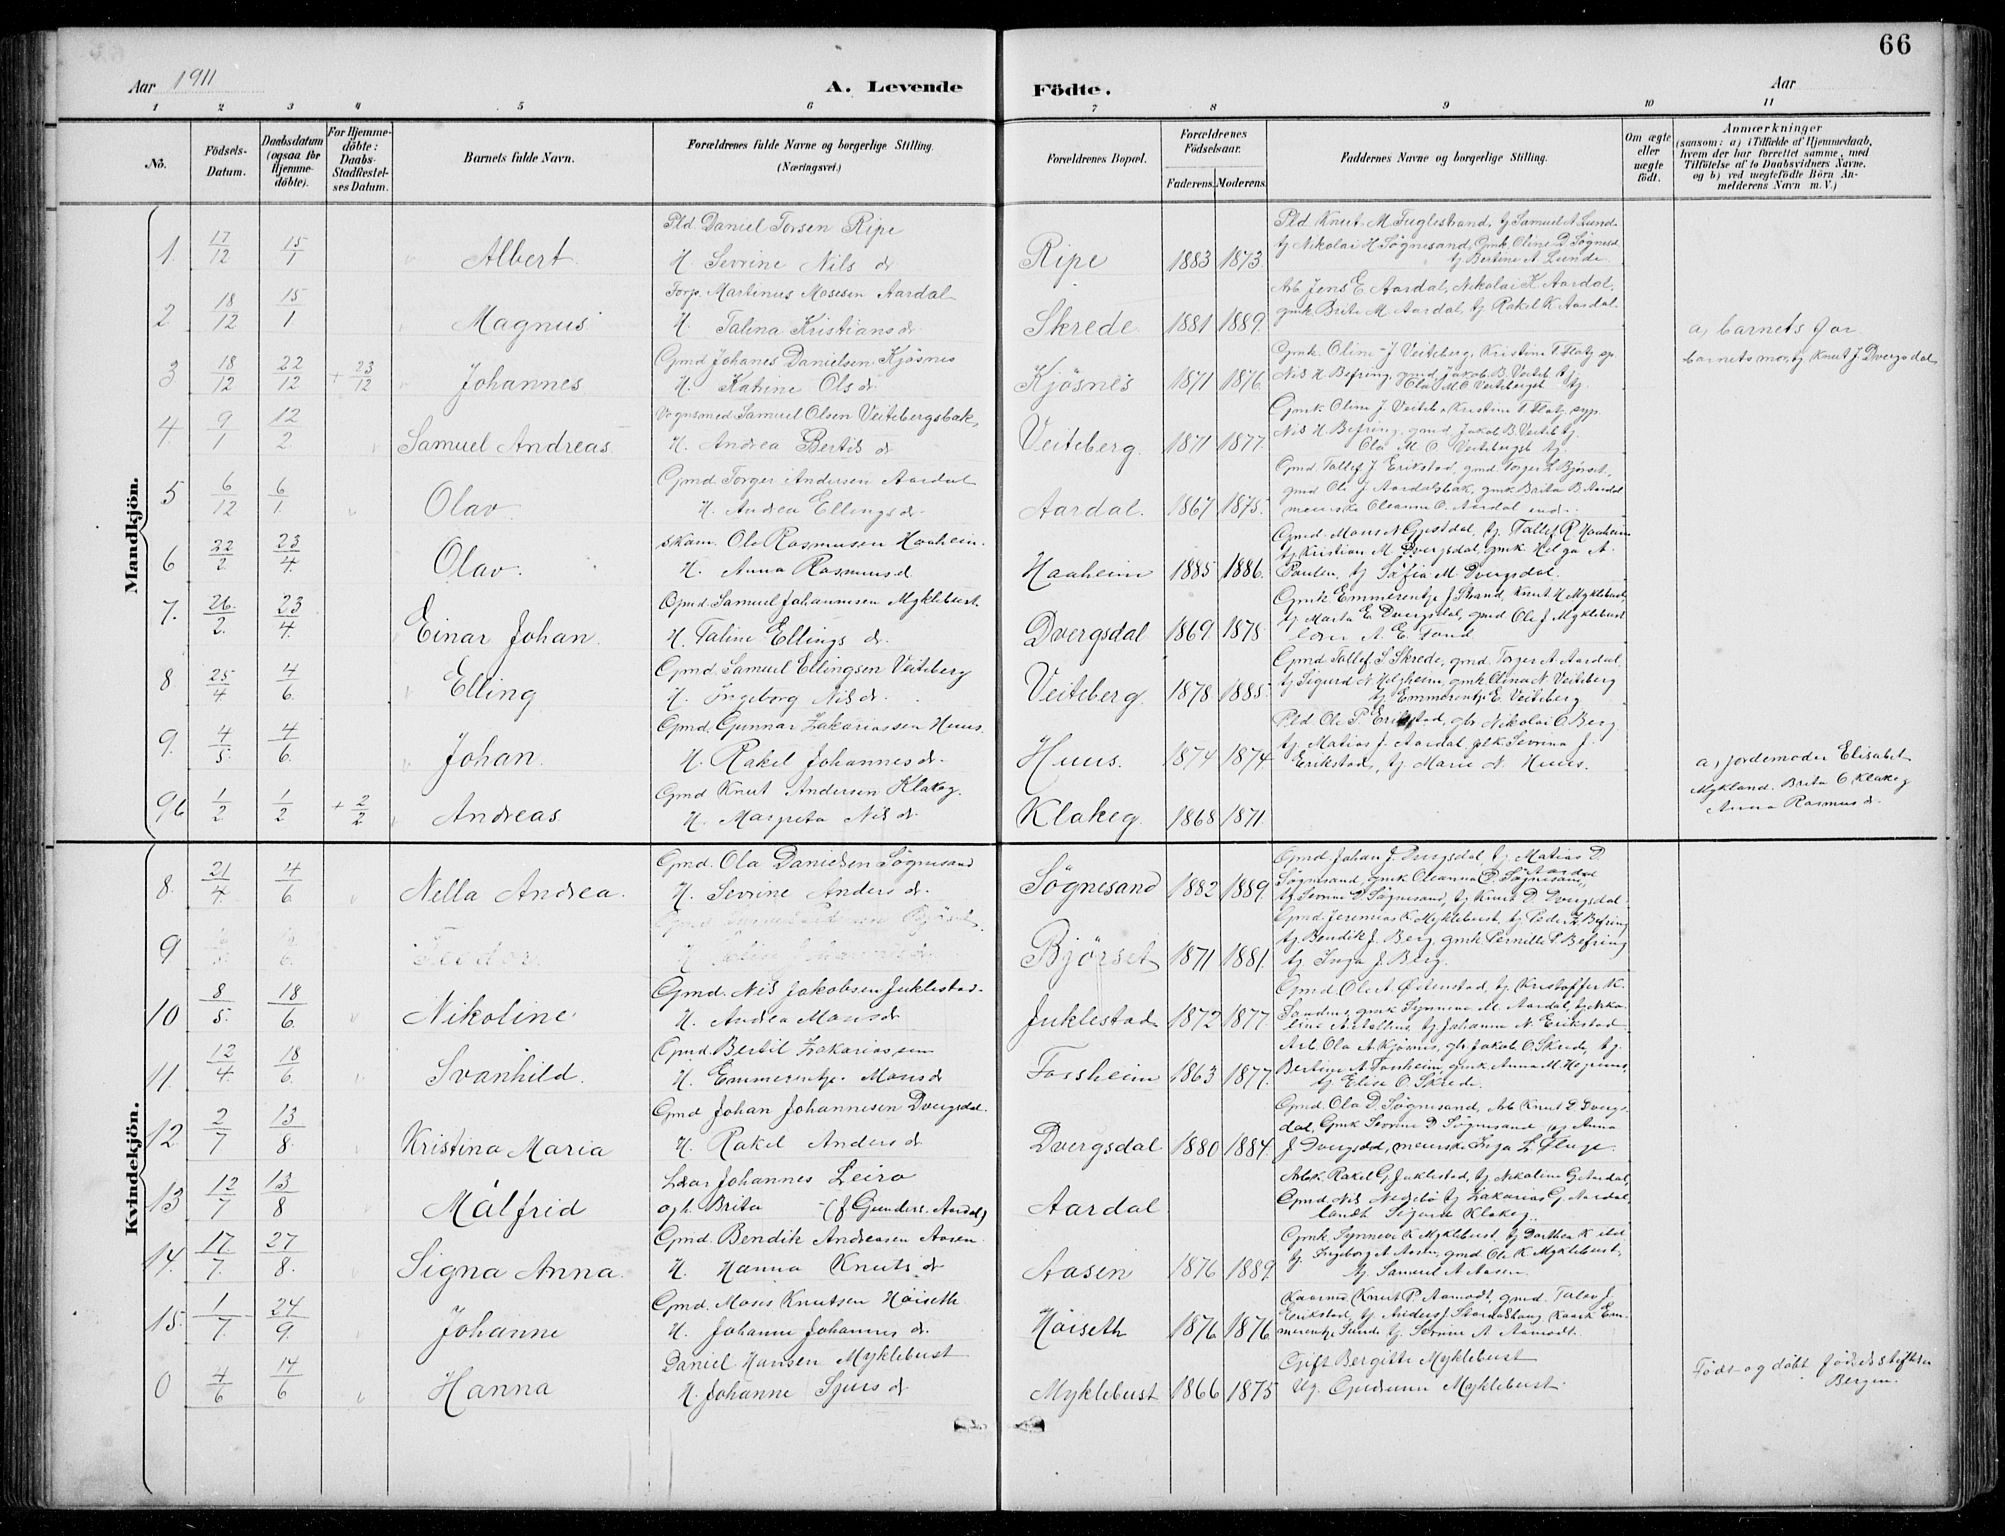 66
Aar 1911
A. Levende
Födte.
Aar
1 2 3 4 5 6 7 8 9 10 11
No.
Födsels-Datum.
Daabsdatum (ogsaa for Hjemme-döbte).
For Hjemme-döbte: Daabs-Stadfæstel-ses Datum.
Barnets fulde Navn.
Forældrenes fulde Navne og borgerlige Stilling. (Næringsvei.)
Forældrenes Bopæl.
Forældrenes Födselsaar.
Faderens. Moderens.
Faddernes Navne og borgerlige Stilling.
Om ægte eller uægte födt.
Anmærkninger
(saasom: a) i Tilfælde af Hjemmedaab, hvem der har forrettet samme, med Tilföielse af to Daabsvidners Navne. og b) ved uegtefödte Börn An-melderens Navn m.V.)
Mandkjön.
Pld Daniel Torsen Ripe
Pld Knut M. Fuglestrand, tj Samuel A. Lunde
1. 17/12 15/1 Albert H. Sevrine Nils d Ripe 1883 1873. tj Nikolai H Søgnesand, Gmk Oline D Søgnesd
tj Bertine A Lunde.
Torp. Martinus Mosesen Aardal
Arb. Jens E. Aardal, Nikolai K Aardal,
2 18/12 15/1 Magnus H. Talina Kristians d Skrede 1881 1889. gmk Brita M. Aardal, tj Rakel K Aardal
a, barnets far
Gmd Johanes Danielsen Kjøsnes
Gmk. Oline J Veiteberg, Kristine T. Flatj sp
barnets mor, tj Knut J. Dvergsdal
3 18/12 22/12 + 23/12 Johannes H. Katrine Ols d Kjøsnes 1871 1876. Nils H Befring, gmd Jakob B. Veiteb tj
Ola M O Veitebergst tj.
Vognsmed Samuel Olsen Veitebergsbak,
Gmk Oline J. Veiteb. Kristine T. Flatj, syp.
4. 9/1 12/2. Samuel Andreas. H. Andrea Bertils d Veiteberg. 1871 1877. Nils H. Befring, gmd Jakob B. Veiteb tj.
Ola M. O Veitebergst tj.
Gmd Torger Andersen Aardal
Gmd Tollef J Erikstad, gmd Torger L Bjørset,
5 6/12 6/1 Olav H. Andrea Ellings d Aardal. 1867 1875. gmd Ole J Aardalsbak, gmk Brita B Aardal
Oleanna O. Aardal
Skom. Ole Rasmusen Haaheim.
Gmd. Mons N Gjestdal, tj. Tallef R Haaheim
6 22/2 23/4. Olav. H. Anna Rasmus d. Haaheim 1885 1886. tj Kristian M Dvergsdal, gmk Helga A.
Paulen, tj Sofia M. Dvergsdal.
Gmd. Samuel Johannesen Myklebust
Gmk Emmerentje J Strand Knut H Myklebust
7. 26./2. 23/4. Einar Johan. H. Taline Ellings d. Dvergsdal 1869 1878 tj Marta E. Dvergsdal, gmd Ole J Myklebust
Gmd. Samuel Ellingsen Veiteberg
Gmd Tollef S Skrede, gmd. Torger A. Aardal,
8 25/4 4/6. Elling H. Ingeborg Nils d. Veiteberg. 1878 1885. tj Sigurd N Helgheim, gmk Olina N Veiteberg
tj Emmerentje E Veiteberg
Gmd. Gunnar Zakariassen Huus.
Pld Ole P. Erikstad, gbr Nikolai O. Berg
9. 4/5. 4/6. Johan. H. Rakel Johannes d. Huus. 1874 1874 tj. Matias J. Aardal plk Sevrina J.
Erikstad, tj. Marie N. Huus.
a, jordemoder Elisabet
Gmd Knut Andersen Klakeg.
Mykland. Brita O. Klakeg
9b 1/2 1/2 + 2/2 Andreas H. Margreta Nils d. Klakeg. 1868 1871. Anna Rasmus d.
Kvindekjön.
Gmd. Ola Danielsen Søgnesand
Gmd Johan J. Dvergsdal, tj Matias D.
8. 21/4. 4/6. Nella Andrea. H. Sevrine Anders d. Søgnesand 1882 1889. Søgnesand, gmk Oleanna D. Søgnesand,
tj Sevrine D Søgnesand, tj Knut D. Dvergsdal.
Gmd. Jeremias K. Myklebust, tj Peder Z. Befring
9 Bjørset 1871 1881. tj Bendik J. Berg. gmk Pernille P. Befring
tj Inga J. Berg.
Gmd. Nils Jakobsen Juklestad.
10 8/5. 18/6. Nikoline H. Andrea Mons d Juklestad 1872 1877. Gmd Olert Østenstad, tj. Kristoffer K.
Sanden, gmk Synneva M. Aardal,
tj Johanna N. Erikstad
Gmd. Bertil Zakariassen
Arb. Ola A. Kjøsnes, gbr. Jakob O. Skrede, tj.
11. 12/4. 18/6. Svanhild. H. Emmerentje Mons d Forsheim 1863 1877. Bertine A Forsheim, gmk Anna M.
tj Elise O. Skrede.
Gmd Johan Johannesen Dvergsdal.
Gmd. Ola D. Søgnesand, Arb Knut D. Dvergs-
12 2/7 13/8 Kristina Maria H. Rakel Anders d Dvergsdal 1880 1884. dal, Gmk Sevrine D Søgnesand og Anna
J Dvergsdal, Inga L. Fluge.
Johannes Leiro
Arbk. Rakel G. Juklestad, tj Nikoline G. Aardal,
13 12/7 13/8 Målfrid og h. Brita (f Gunders. Aardal) Aardal Gmd. Nils Nedrebø tj Zakarias G. Aardal,
landh. Sigurd Klakeg.
Gmd. Bendik Andreasen Aasen.
Gmk. Synneve K Myklebust, tj. Dorthea K
14. 17./7. 27/8. Signa Anna. H. Hanna Knuts d Aasen 1876 1889. tj. Ingeborg A Aasen, gmd Ole K Myklebust,
tj. Samuel A Aasen.
Gmd. Moses Knutsen Høiseth
Kaarmd Knut P. Aamodt, gmd. Tolev J.
15. 1/7. 24/9. Johanne H. Johanne Johannes d. Høiseth 1876 1876 Erikstad, tj. Anders J. Stordalshaug Kaark Em-
merentje Sande tj. Sevrine A Aamodt.
Daniel Hansen Myklebust
Gift Bergitte Myklebust
0 4/6 14/6 Hanna H. Johanne Sjurs d Myklebust 1866 1875 Ug. Gudrunn Myklebust.
Født og døbt fødselsstiftelsen
Bergen.